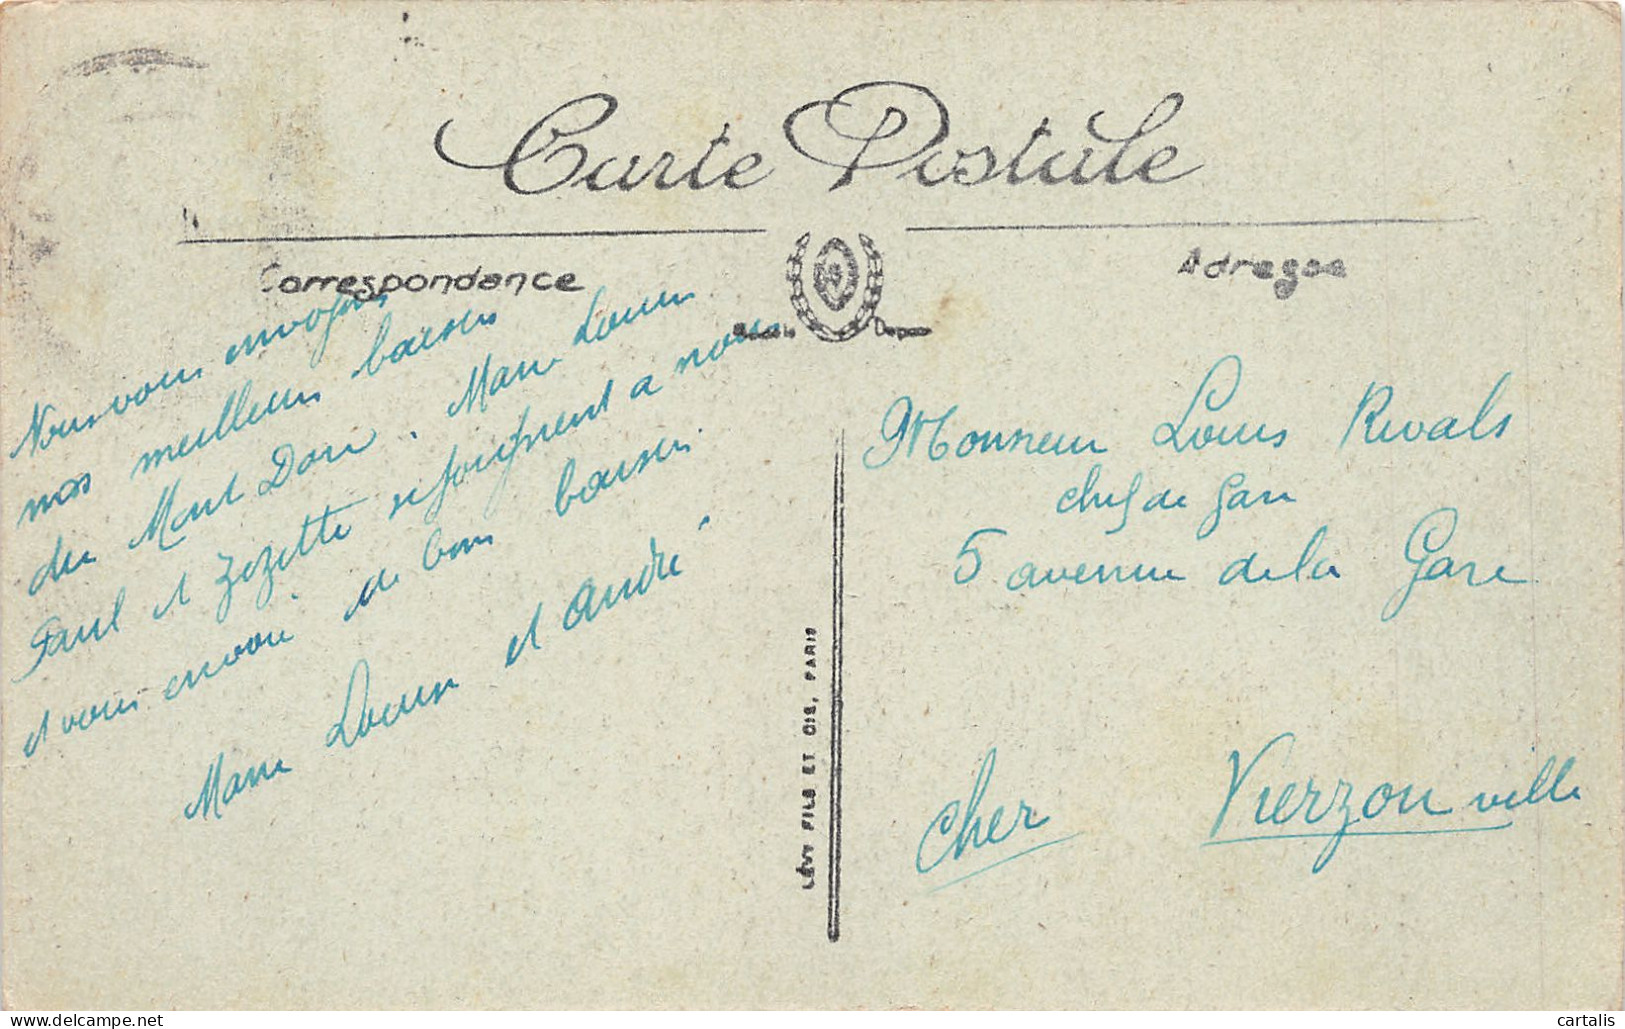 Carte Postale
Correspondance
Adresse
Nous vous envoyons
nos meilleurs baisers
du Mont Dore. Marie Louise
Paul et Zezette se joignent a nous
et vous envoie de bons baisers
Marie Louise et André
Monsieur Louis Rivals
chef de gare
5 avenue de la Gare
Vierzon ville
Cher
LÉVY FILS ET CIE, PARIS
delcampe.net
cartalis